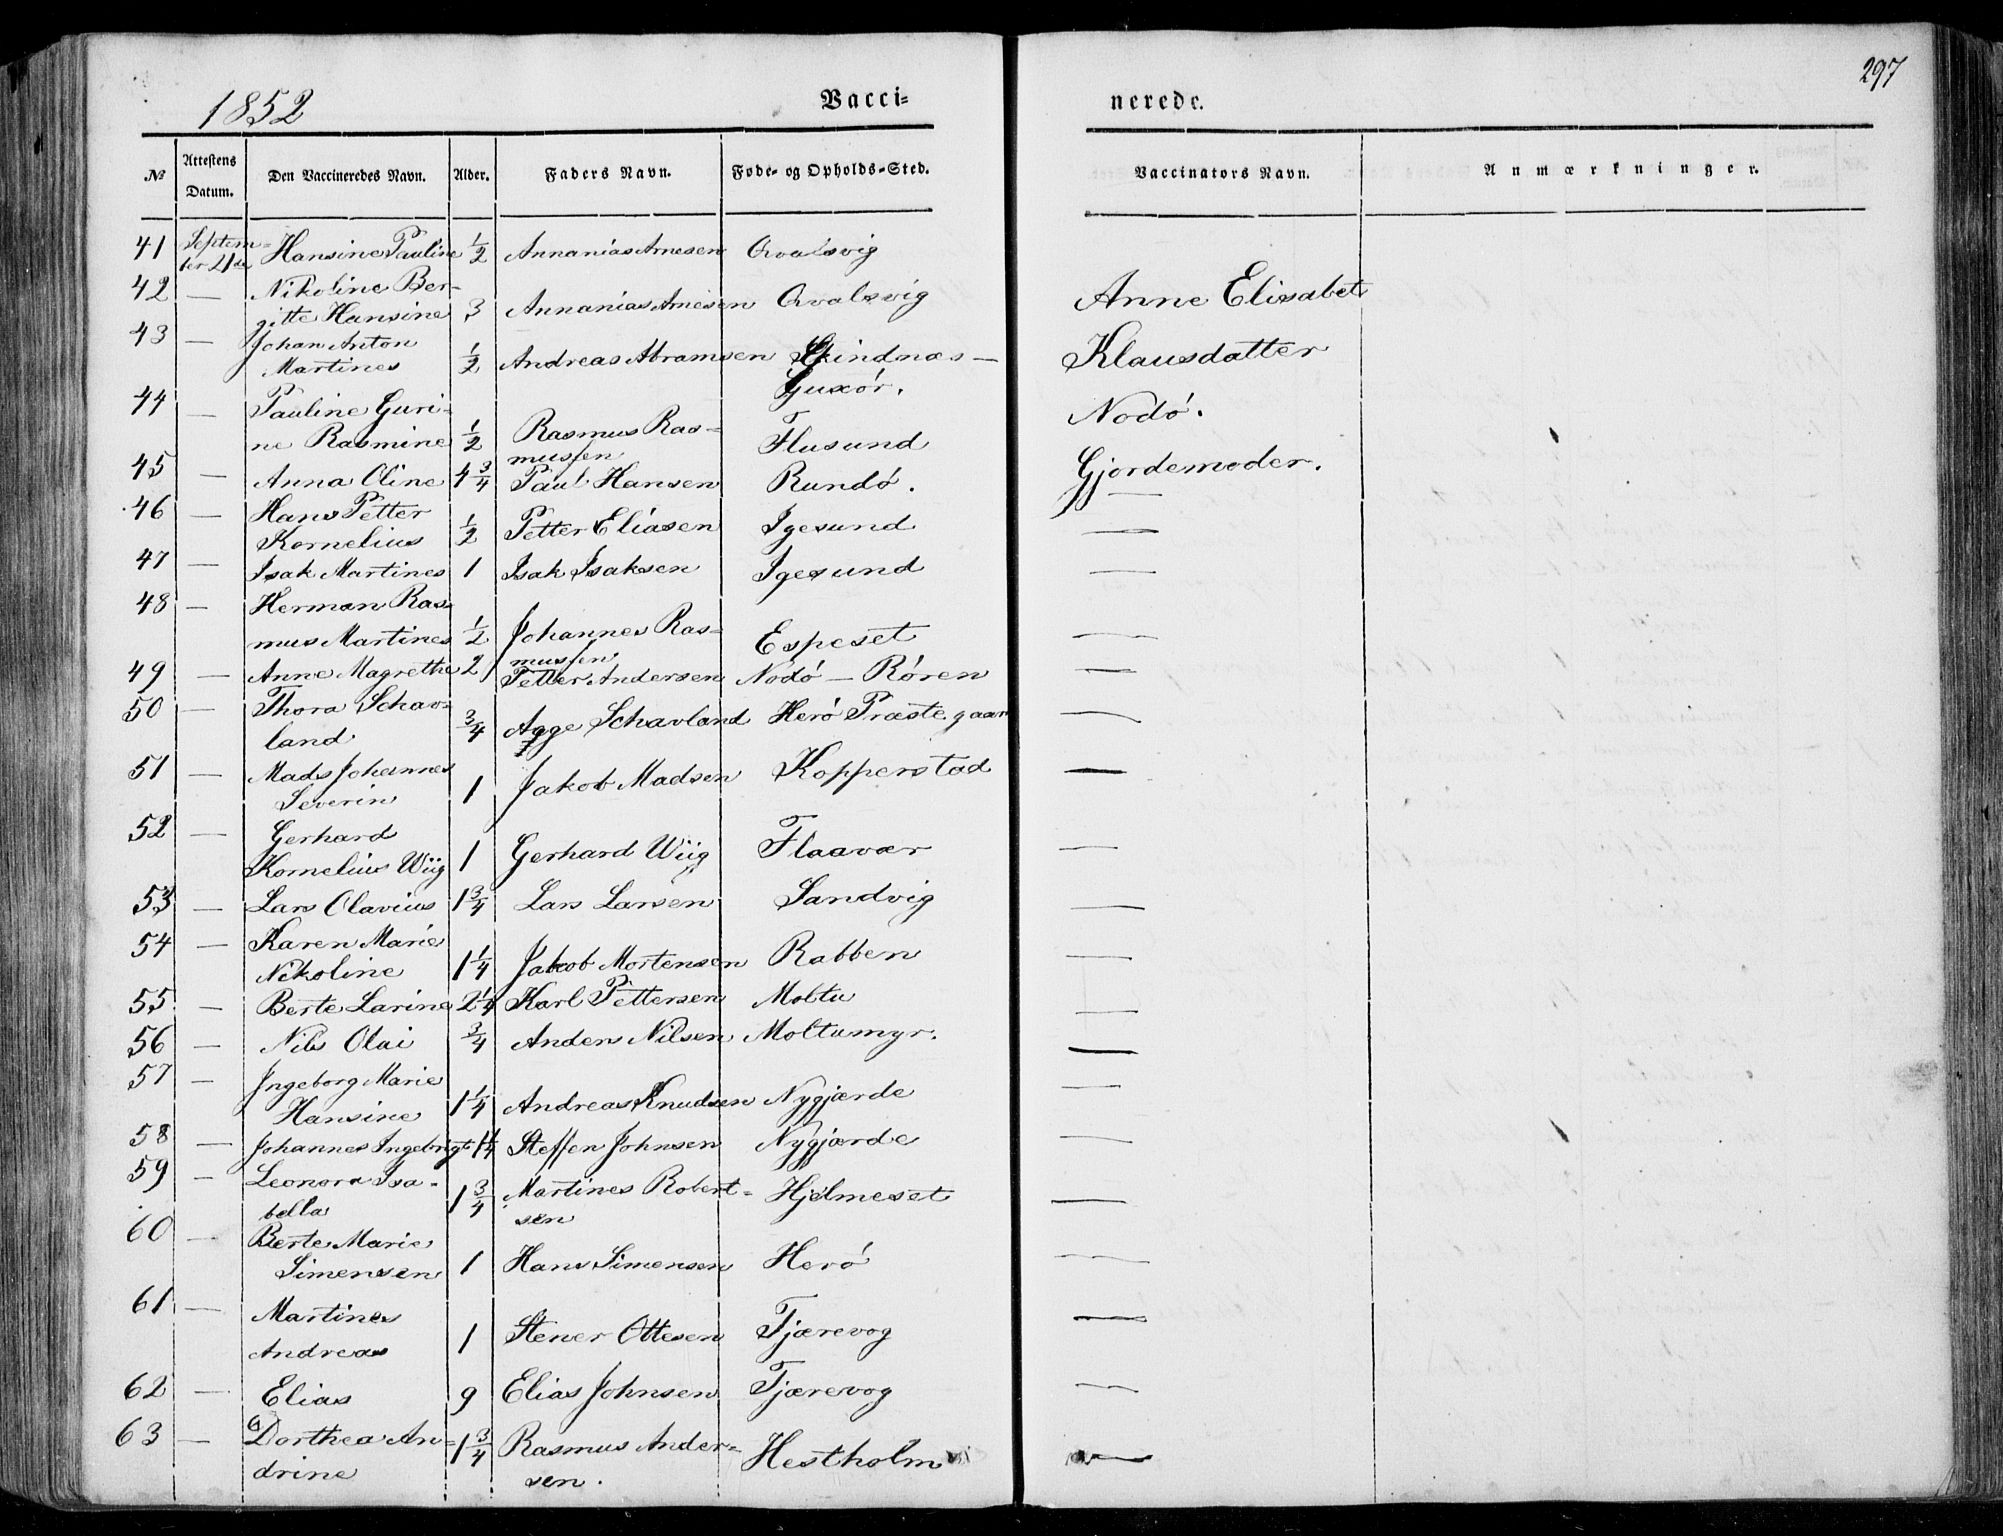 297
1852
Vacci=
nerede.
№ Attestens Datum. Den Vaccineredes Navn. Alder. Faders Navn. Føde- og Opholds-Sted. Vaccinators Navn. Anmærkninger.
41 Septem-
ber 21de Hansine Pauline 1/2 Annanias Arnesen Qvalsvig
42 — Nikoline Ber-
gitte Hansine 3 Annanias Arnesen Qvalsvig Anne Elisabet
43 — Johan Anton
Martines 1/2 Andreas Abramsen Skindnæs — Klausdatter
Guxör.
44 — Pauline Guri- Nodö.
ne Rasmine 1/2 Rasmus Ras-
mussen Flusund
45 — Anna Oline 4 3/4 Paul Hansen Rundö. Gjordemoder.
46 — Hans Petter —
Kornelius 1/2 Petter Eliasen Igesund —
47 — Isak Martines 1 Isak Isaksen Igesund —
48 — Herman Ras-
mus Martines 1/2 Johannes Ras-
mussen Espeset —
49 — Anne Magrethe 2 Petter Andersen Nodö — Rören —
50 — Thora Schav-
land 3/4 Agge Schavland Herö Præstegaar —
51 — Mads Johannes
Severin 1 Jakob Madsen Kopperstad —
52 — Gerhard
Kornelius Wiig 1 Gerhard Wiig Flaavær —
53 — Lars Olavius 1 3/4 Lars Larsen Sandvig —
54 — Karen Marie
Nikoline 1 1/4 Jakob Mortensen Rabben —
55 — Berte Larine 2 1/4 Karl Pettersen Moltu —
56 — Nils Olai 3/4 Anders Nilsen Moltumyr. —
57 — Ingeborg Marie
Hansine 1 1/4 Andreas Knudsen Nygjærde —
58 — Johannes Ingebrigt 1 1/4 Steffen Johnsen Nygjærde —
59 — Leonora Isa-
bella 1 3/4 Martines Robert-
sen Hjelmeset —
60 — Berte Marie
Simensen 1 Hans Simensen Herö —
61 — Martines
Andreas 1 Stener Ottesen Tjærevog —
62 — Elias 9 Elias Johnsen Tjærevog —
63 — Dorthea An-
drine 1 3/4 Rasmus Ander-
sen. Hestholm —